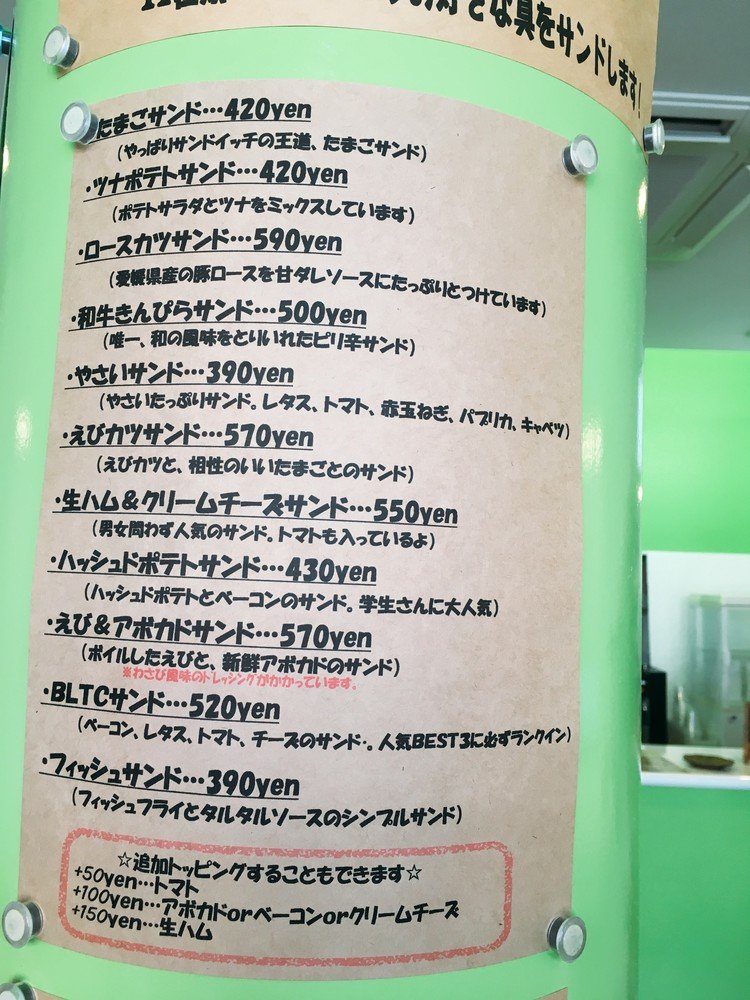 な具をサンドします!
たまごサンド…420yen
(やっぱりサンドイッチの王道、たまごサンド)
・ツナポテトサンド…420yen
(ポテトサラダとツナをミックスしています)
・ロースカツサンド…590yen
(愛媛県産の豚ロースを甘ダレソースにたっぷりとつけています)
・和牛きんぴらサンド…500yen
(唯一、和の風味をとりいれたピリ辛サンド)
・やさいサンド…390yen
(やさいたっぷりサンド。レタス、トマト、赤玉ねぎ、パプリカ、キャベツ)
・えびカツサンド…570yen
(えびカツと、相性のいいたまごとのサンド)
・生ハム&クリームチーズサンド…550yen
(男女問わず人気のサンド。トマトも入っているよ)
・ハッシュドポテトサンド…430yen
(ハッシュドポテトとベーコンのサンド。学生さんに大人気)
・えび&アボカドサンド…570yen
(ボイルしたえびと、新鮮アボカドのサンド)
※わさび風味のドレッシングがかかっています。
・BLTCサンド…520yen
(ベーコン、レタス、トマト、チーズのサンド・。人気BEST3に必ずランクイン)
・フィッシュサンド…390yen
(フィッシュフライとタルタルソースのシンプルサンド)
☆追加トッピングすることもできます☆
+50yen…トマト
+100yen…アボカドorベーコンorクリームチーズ
+150yen…生ハム